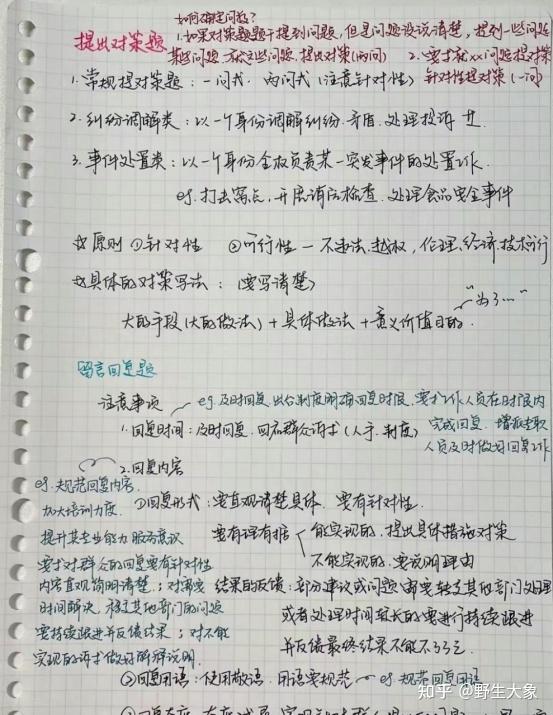 如何确定问题？
提出对策题
1.如果对策题题干提到问题，但是问题没说清楚，提到一些问题
某些问题 就这些问题，提出对策(两问) 2.要求就××问题提对策
针对性提对策(一问)
1.常规提对策题：一问式、两问式(注意针对性)
2.纠纷调解类：以一个身份调解纠纷、矛盾、处理投诉
3.事件处置类：以一个身份全权负责某一突发事件的处置工作.
eg.打击窝点，开展清店检查、处理食品安全事件
☆原则 ①针对性 ②可行性—不违法、越权，伦理、经济、技术可行
☆具体的对策写法：(要写清楚)
大的手段(大的做法)+具体做法+意义价值目的.
“为了…”
留言回复题
注意事项
eg.及时回复.出台制度明确回复时限、要求工作人员在时限内
完成回复.
1.回复时间：及时回复、回应群众诉求(人手、制度)
人员及时做好回复工作
2.回复内容
eg.规范回复内容.
加大培训力度.
①回复形式：要直观清楚具体、要有针对性.
提升其专业能力
要有理有据
能实现的，提出具体措施对策
不能实现的，要说明理由
要求对群众的回复要有针对性
内容直观简明清楚；对需要
时间解决、移交其他部门的问题
要持续跟进并反馈结果；对不能
实现的诉求做好解释说明.
结果的反馈：部分建议或问题需要转交其他部门处理
或者处理时间较长的要进行持续跟进
并反馈最终结果不能不了了之.
②回复用语：使用敬语、用语要规范 eg.规范回复用语
知乎 @野生大象